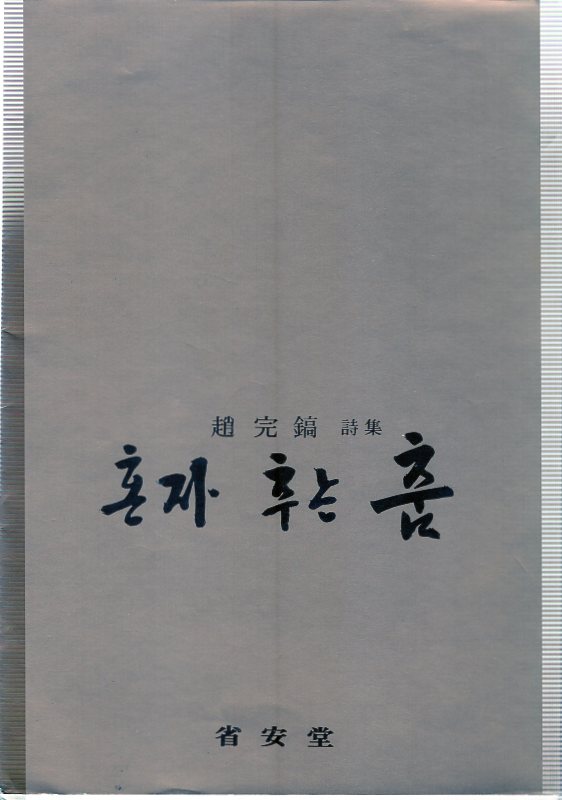 趙完鎬 詩集
혼자 추는 춤
省安堂